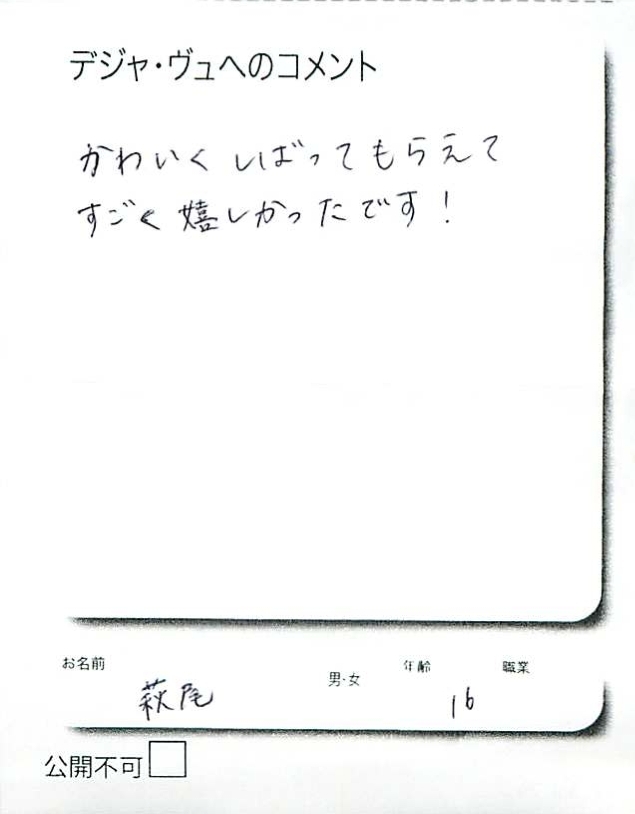 デジャ・ヴュへのコメント
かわいく しばってもらえて
すごく嬉しかったです！
お名前
萩尾
男・女
年齢
16
職業
公開不可